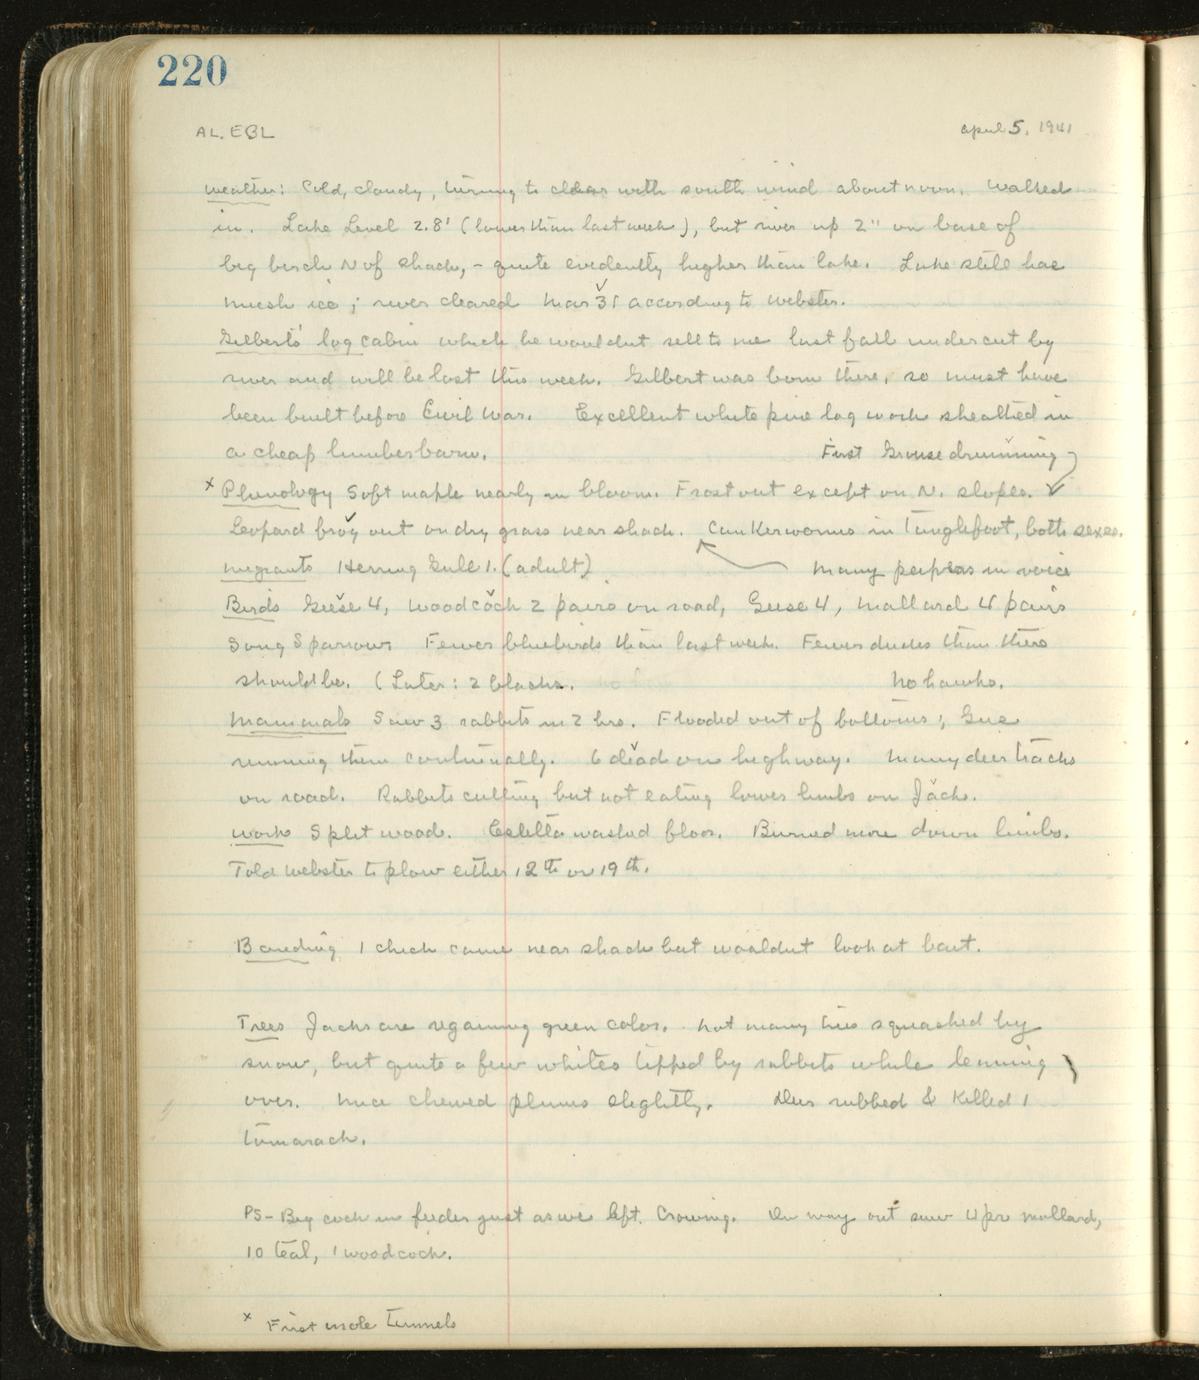 220
AL. EBL April 5, 1941
Weather: Cold, cloudy, turning to clear with south wind about noon. Walked
in. Lake Level 2.8' (lower than last week), but river up 2" on base of
big birch N of shack, - quite evidently higher than lake. Lake still has
much ice; river cleared Mar 31 according to Webster.
Gilberts' log cabin which he wouldnt sell to me last fall undercut by
river and will be lost this week. Gilbert was born there, so must have
been built before Civil War. Excellent white pine log work sheathed in
a cheap lumber barn. First Grouse drumming
x Phenology Soft maple nearly in bloom. Frost out except on N. slopes.
Leopard frog out on dry grass near shack. Cankerworms in Tanglefoot, both sexes.
Migrants Herring Gull 1. (adult) Many peepers in voice
Birds Geese 4, Woodcock 2 pairs on road, Geese 4, Mallard 4 pairs
Song Sparrows Fewer bluebirds than last week. Fewer ducks than there
should be. (Later: 2 blacks. No hawks.
Mammals Saw 3 rabbits in 2 hrs. Flooded out of bottoms; Gus
running them continually. 6 dead on highway. Many deer tracks
on road. Rabbits cutting but not eating lower limbs on Jack.
Work Split wood. Estella washed floor. Burned more down limbs.
Told Webster to plow either 12th or 19th.
Banding 1 chick came near shack but wouldnt look at bait.
Trees Jacks are regaining green color. Not many trees squashed by
snow, but quite a few whites tipped by rabbits while leaning
over. Mice chewed plums slightly. Deer rubbed & killed 1
tamarack.
PS- Big cock in feeder just as we left. Crowing. On way out saw 4 pr mallard,
10 teal, 1 woodcock.
x First mole tunnels